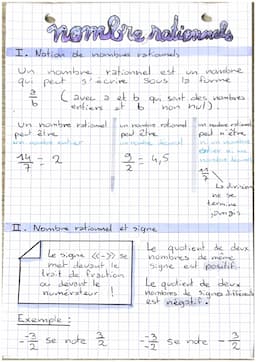 nombre rationnels
I. Notion de nombres rationnels
Un nombre rationnel est un nombre
qui peut s'écrire sous la forme
a/b (avec a et b qui sont des nombres
entiers et b non nul).
Un nombre rationnel
peut être
un nombre entier
14/7 = 2
un nombre rationnel
peut être
un nombre décimal
9/2 = 4,5
un nombre rationnel
peut n'être
ni un nombre
entier ni un
nombre décimal
La division
ne se
termine
jamais
II. Nombre rationnel et signe
Le signe «-» se
met devant le
trait de fraction
ou devant le
numérateur !
Le quotient de deux
nombres de même
signe est positif.
Le quotient de deux
nombres de signes différents
est négatif.
Exemple :
-3/-2 se note 3/2
-3/2 se note - 3/2